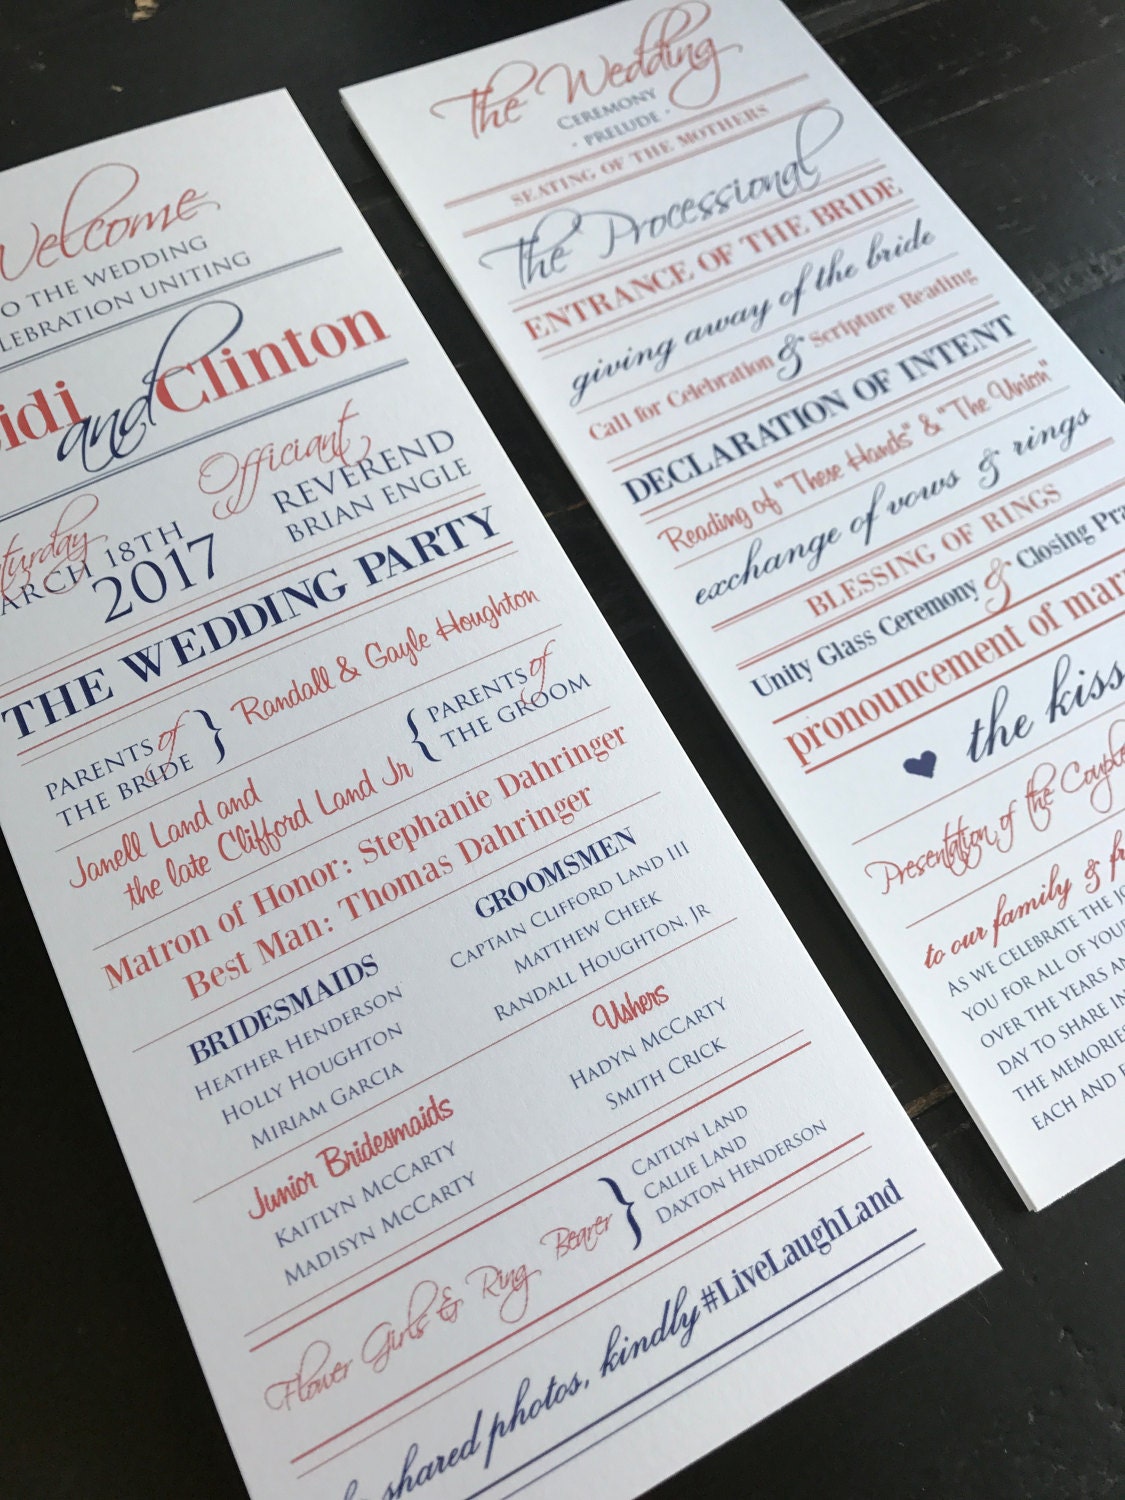 Welcome
TO THE WEDDING
CELEBRATION UNITING
and Clinton
Saturday
MARCH 18TH
2017
Officiant
REVEREND
BRIAN ENGLE
THE WEDDING PARTY
PARENTS of
THE BRIDE
} Randall & Gayle Houghton
Janell Land and
the late Clifford Land Jr
{ PARENTS of
THE GROOM
Matron of Honor: Stephanie Dahringer
Best Man: Thomas Dahringer
BRIDESMAIDS
HEATHER HENDERSON
HOLLY HOUGHTON
MIRIAM GARCIA
GROOMSMEN
CAPTAIN CLIFFORD LAND III
MATTHEW CHEEK
RANDALL HOUGHTON, JR
Junior Bridesmaids
KAITLYN MCCARTY
MADISYN MCCARTY
Ushers
HADYN MCCARTY
SMITH CRICK
Flower Girls & Ring Bearer }
CAITLYN LAND
CALLIE LAND
DAXTON HENDERSON
shared photos, kindly #LiveLaughLand
The Wedding
CEREMONY
- PRELUDE -
SEATING OF THE MOTHERS
The Processional
ENTRANCE OF THE BRIDE
giving away of the bride
Call for Celebration & Scripture Reading
DECLARATION OF INTENT
Reading of "These Hands" & "The Union"
exchange of vows & rings
BLESSING OF RINGS
Unity Glass Ceremony & Closing Pra
pronouncement of mar
the kiss
Presentation of the Couple
to our family & fr
AS WE CELEBRATE THE JO
YOU FOR ALL OF YOUR
OVER THE YEARS AN
DAY TO SHARE IN
THE MEMORIES
EACH AND E